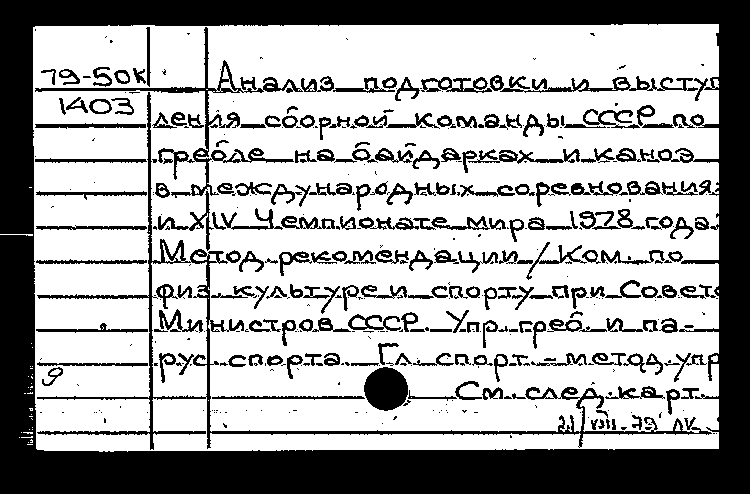 79-50к Анализ подготовки и выступ
1403 ления сборной команды СССР по
гребле на байдарках и каноэ
в международных соревнования
и XIV Чемпионате мира 1978 года:
Метод. рекомендации / Ком. по
физ. культуре и спорту при Совете
Министров СССР. Упр. греб. и па-
рус. спорта. Гл. спорт.-метод. упр
9 См. след. карт.
21/VIII-79 ЛК